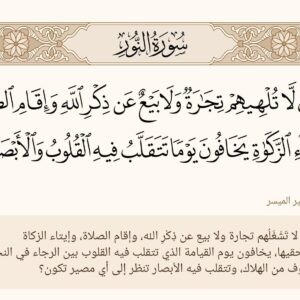 سُورَةُ النُّورِ
لَّا تُلْهِيهِمْ تِجَٰرَةٌ وَلَا بَيْعٌ عَن ذِكْرِ ٱللَّهِ وَإِقَامِ
ٱلزَّكَوٰةِ يَخَافُونَ يَوْمًا تَتَقَلَّبُ فِيهِ ٱلْقُلُوبُ
الميسر
لا تَشْغَلُهم تجارة ولا بيع عن ذِكْرِ الله، وإقام الصلاة، وإيتاء الزكاة
يخافون يوم القيامة الذي تتقلب فيه القلوب بين الرجاء في
من الهلاك، وتتقلب فيه الأبصار تنظر إلى أي مصير تكون؟